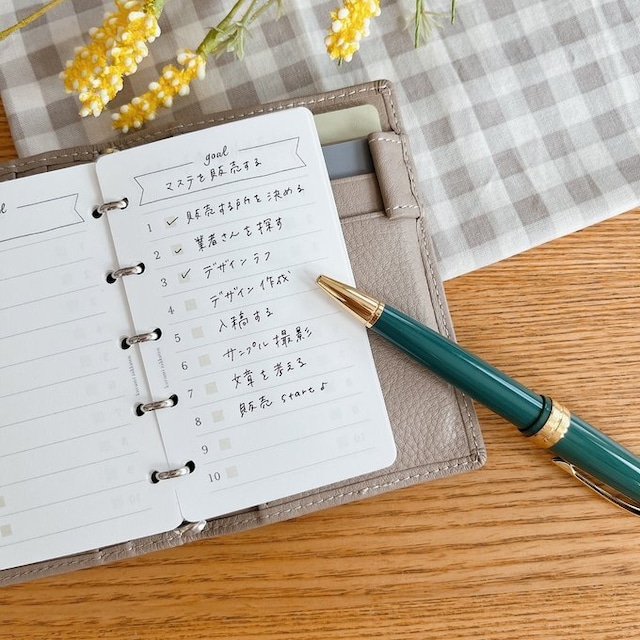 goal
マステを販売する
1 販売する所を決める
2 業者さんを探す
3 デザインラフ
4 デザイン作成
5 入稿する
6 サンプル撮影
7 文章を考える
8 販売 start♪
9
10